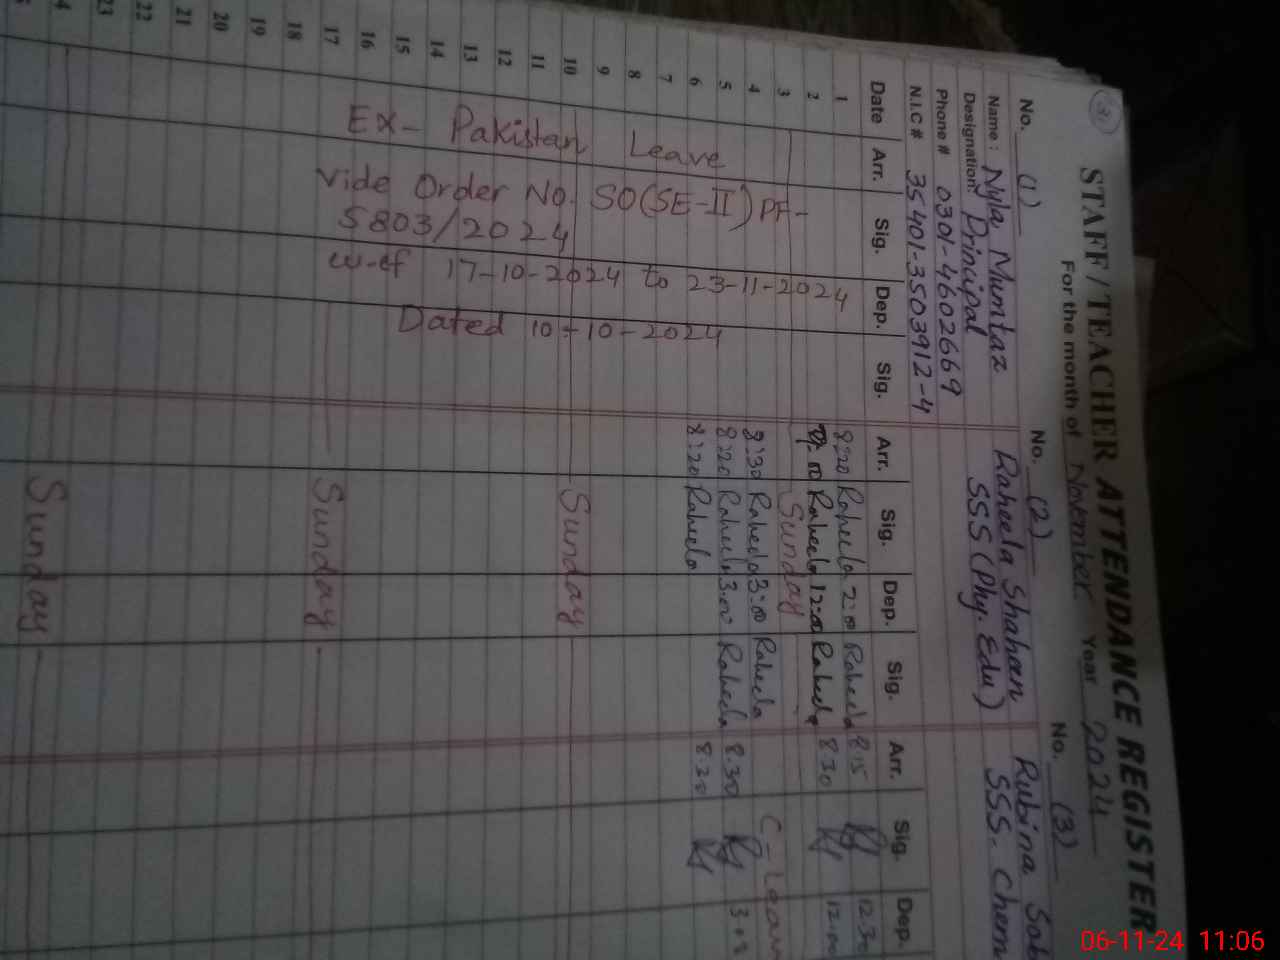 3
STAFF/TEACHER ATTENDANCE REGISTER
For the month of November Year 2024
No. (1) No. (2) No. (3)
Name: Nyla Mumtaz Raheela Shaheen Rubina Sab
Designation: Principal SSS (Phy. Edu) SSS. Chem
Phone # 0301-4602669
N.I.C # 35401-3503912-4
Date Arr. Sig. Dep. Sig. Arr. Sig. Dep. Sig. Arr. Sig. Dep.
1 8:20 Raheela 2:00 Raheela 8.15 12.30
2 Raheela 12:00 Raheela 8.30 12.00
3 Sunday
4 8:30 Raheela 3:00 Raheela C-Leave
5 8:20 Raheela 3:00 Raheela 8.30
6 8:20 Raheela 8.30
7
8
9
10 Sunday
11
12
13
14
15
16
17 Sunday
18
19
20
21
22
23
4 Sunday
Ex-Pakistan Leave
vide Order No. SO(SE-II)PF-
5803/2024
w-ef 17-10-2024 to 23-11-2024
Dated 10-10-2024
06-11-24 11:06